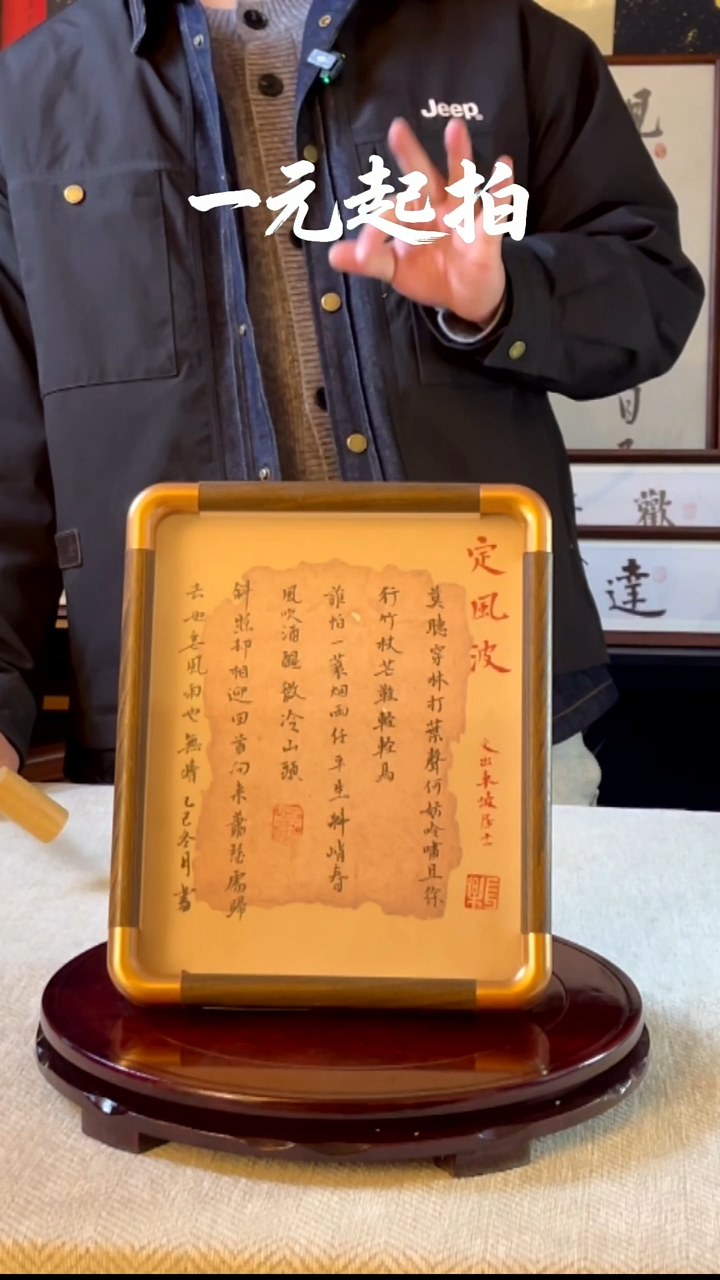 Jeep
一元起拍
定風波
文出東坡居士
莫聽穿林打葉聲何妨吟嘯且徐
行竹杖芒鞋輕馬
誰怕一蓑烟雨任平生料峭春
風吹酒醒微冷山頭
斜照却相迎回首向来蕭瑟處歸
去也無風雨也無晴 乙巳冬月 書
達